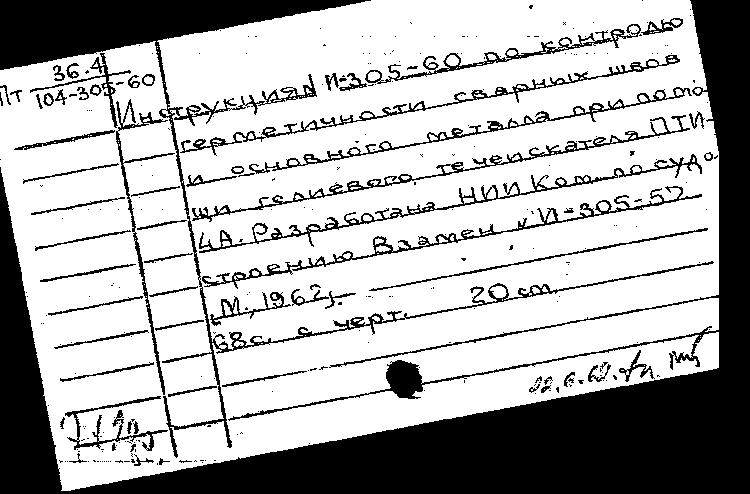 Пт 36.4
104-305-60
Инструкция И-305-60 по контролю
герметичности сварных швов
и основного металла при помо-
щи гелиевого течеискателя ПТИ-
4А. Разработана НИИ Ком. по судо
строению Взамен И-305-57
М., 1962г.
68с. с черт. 20 см
22.6.62.